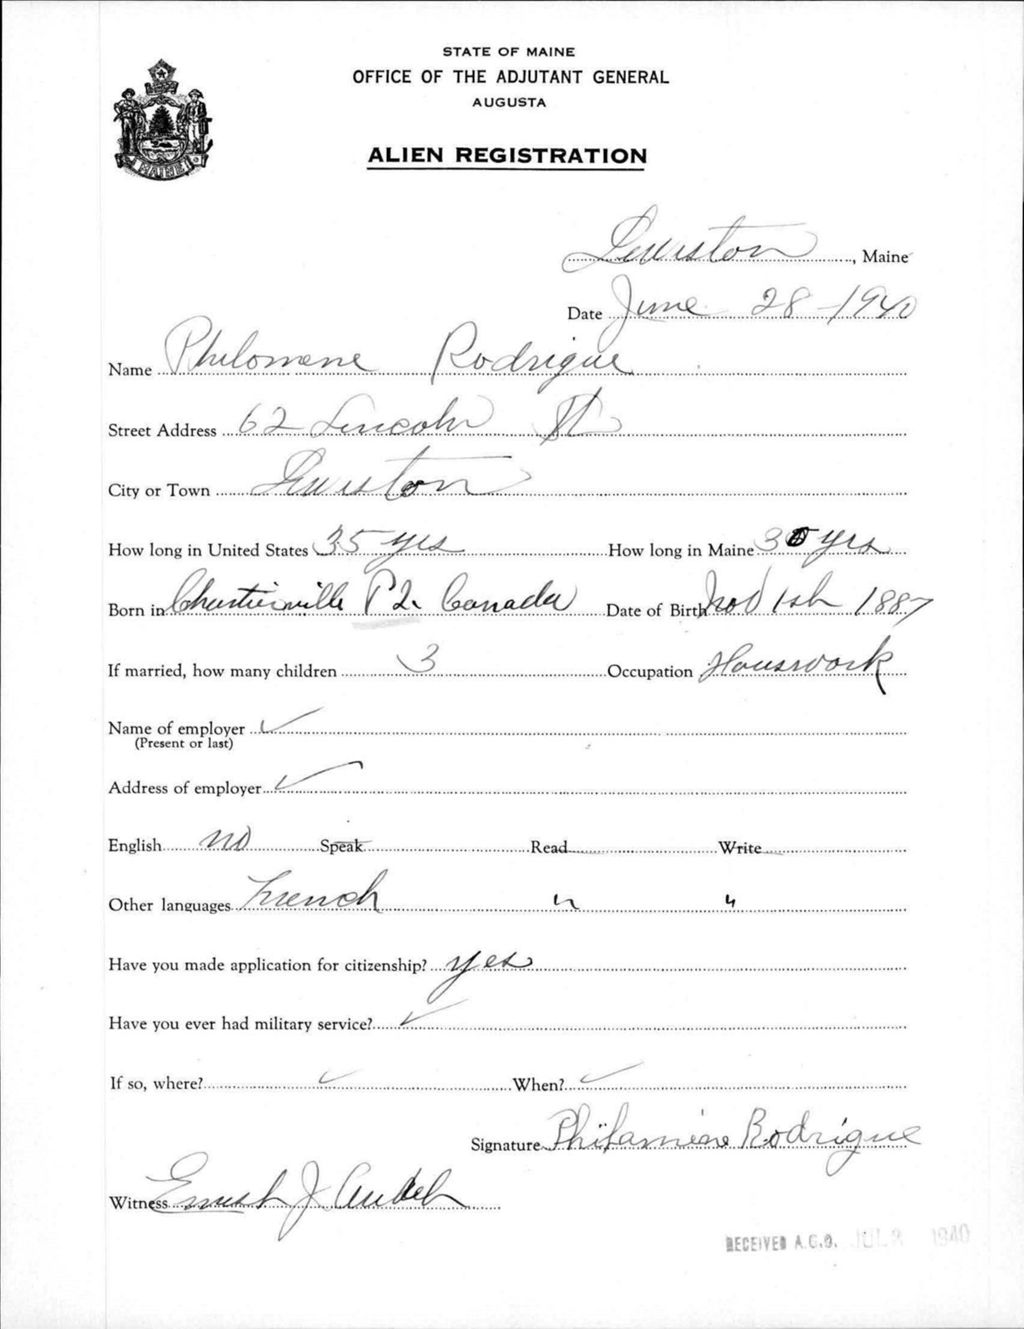 STATE OF MAINE
OFFICE OF THE ADJUTANT GENERAL
AUGUSTA
ALIEN REGISTRATION
MAINE
Lewiston, Maine
Date June 28-1940
Name Philomene Rodrigue
Street Address 62 Lincoln St
City or Town Lewiston
How long in United States 35 yrs How long in Maine 35 yrs
Born in Chartierville P Q. Canada Date of Birth Nov 1st 1887
If married, how many children 3 Occupation Houswork
Name of employer ✓
(Present or last)
Address of employer ✓
English no Speak Read Write
Other languages French " "
Have you made application for citizenship? yes
Have you ever had military service? ✓
If so, where? ✓ When? ✓
Signature Philamène Rodrigue
Witness Ernest J.
RECEIVED A.G.O. JUL 1940